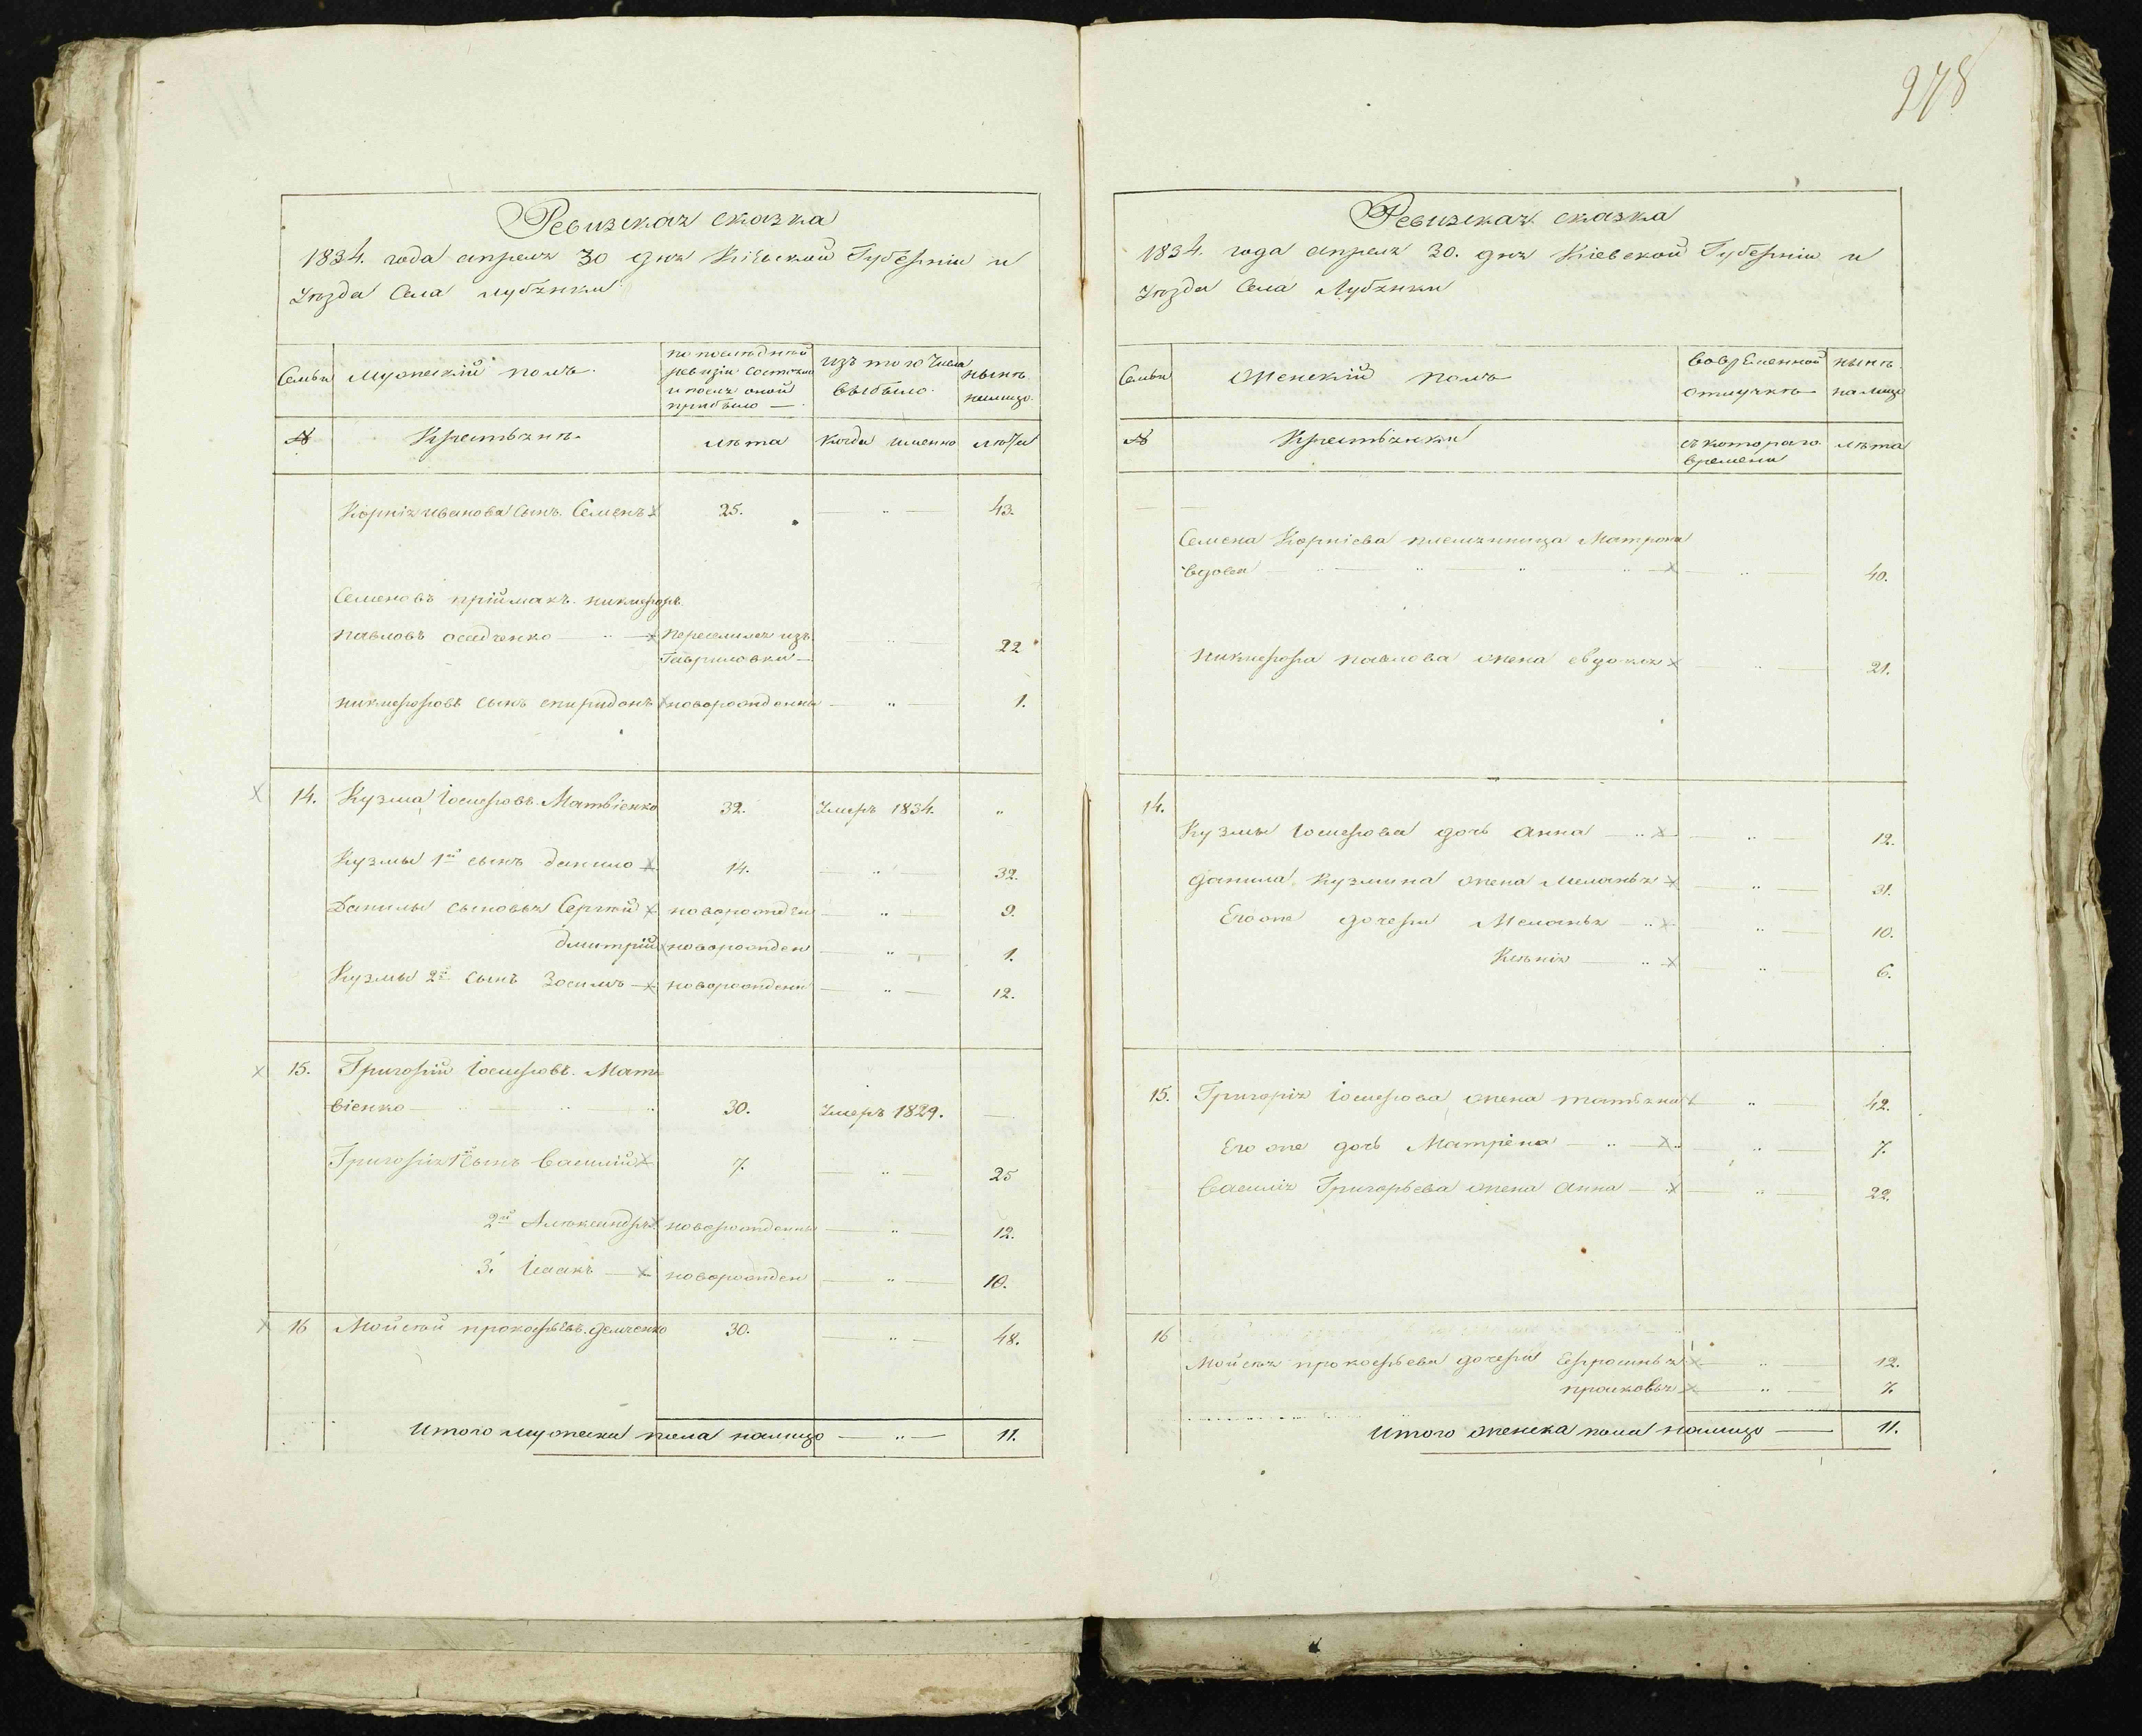 278
Ревизская сказка
1834. года апреля 30 дня Кіевской Губерніи и
Уѣзда Села Лубянки
Семьи
Мужескій полъ.
по послѣдней
ревизіи состояло
и послѣ оной
прибыло —
изъ того числа
выбыло.
нынѣ
налицо.
№
Крестьянѣ.
лѣта
когда именно
лѣта
Корнія иванова сынъ Семенъ 25. — „ — 43.
Семеновъ пріймакъ никифоръ
павловъ осадченко — „ — переселился изъ „ 22
Гавриловки —
никифоровъ сынъ спиридонъ новорожденны — „ — 1.
14. Кузма Іосифовъ Матвіенко 32. Умеръ 1834. „
Кузмы 1й сынъ данило 14. — „ — 32.
Данилы сыновья Сергѣй новорожден — „ — 9.
дмитрій новорожден — „ — 1.
Кузмы 2й сынъ Зосимъ новорожденн — „ — 12.
15. Григорій Іосифовъ Мат
віенко — „ „ 30. Умеръ 1829. —
Григорія 1й сынъ Василій 7. — „ — 25
2й Александръ новорожденны — „ — 12.
3й Ісаакъ — новорожден — „ — 10.
16 Мойсей прокофьевъ демченко 30. — „ — 48.
Итого мужеска пола налицо — „ — 11.
Ревизская сказка
1834. года апреля 30. дня Кіевской Губерніи и
Уѣзда Села Лубянки
Семьи
Женскій полъ
Во временной
отлучкѣ
нынѣ
на лицо
№
Крестьянки
съ котораго
времени
лѣта
Семена Корніева племяница Матрона
вдова — „ — „ — „ — „ — 40.
никифора павлова жена евдокія — „ — 21.
14.
Кузмы Іосифова дочь анна — „ — „ — 12.
данила Кузмина жена Меланья — „ — 31.
Его же дочери Меланья — „ — „ — 10.
Ксѣнія — „ — „ — 6.
15. Григорія Іосифова жена татьяна „ — 42.
Его же дочь Матрёна — „ — „ — 7.
Василія Григорьева жена анна — „ — 22.
16
Мойсея прокофьева дочери Ефросинья — „ — 12.
прасковья — „ — 7.
Итого женска пола налицо — 11.